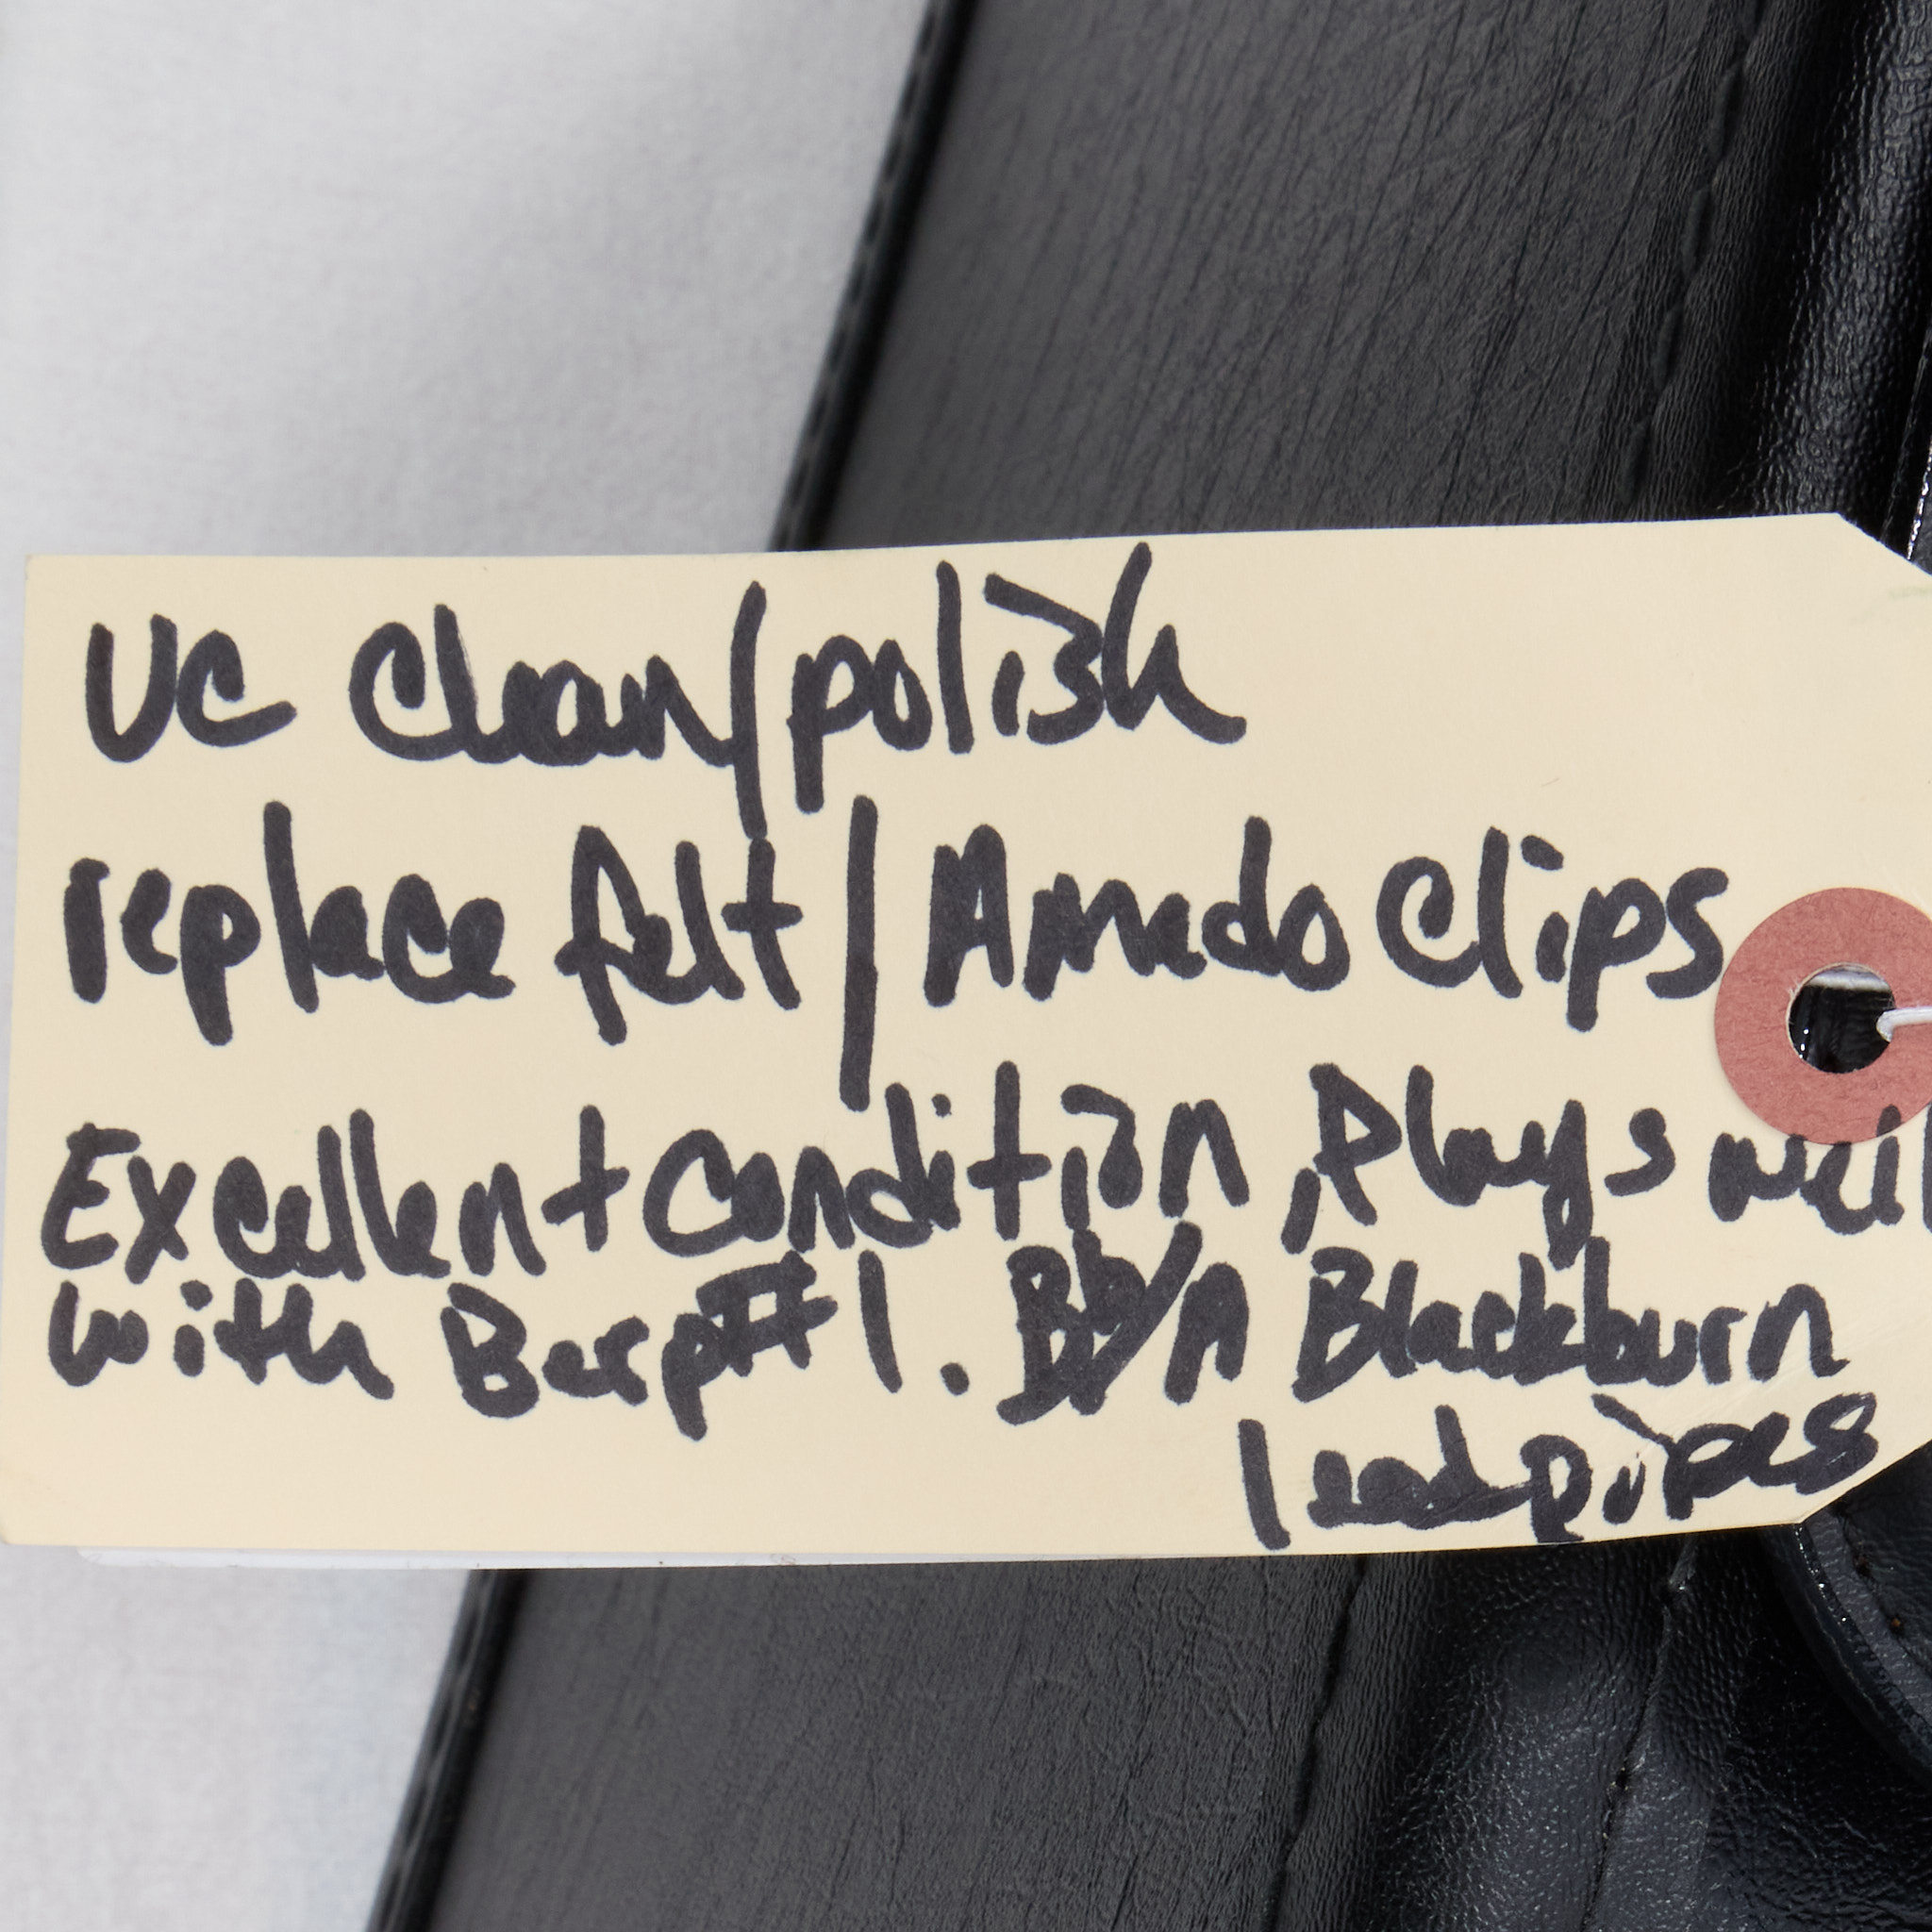 UC Clean/polish
replace felt / Amado Clips
Excellent Condition, Plays well
with Berp #1. Bb/A Blackburn
leadpipes